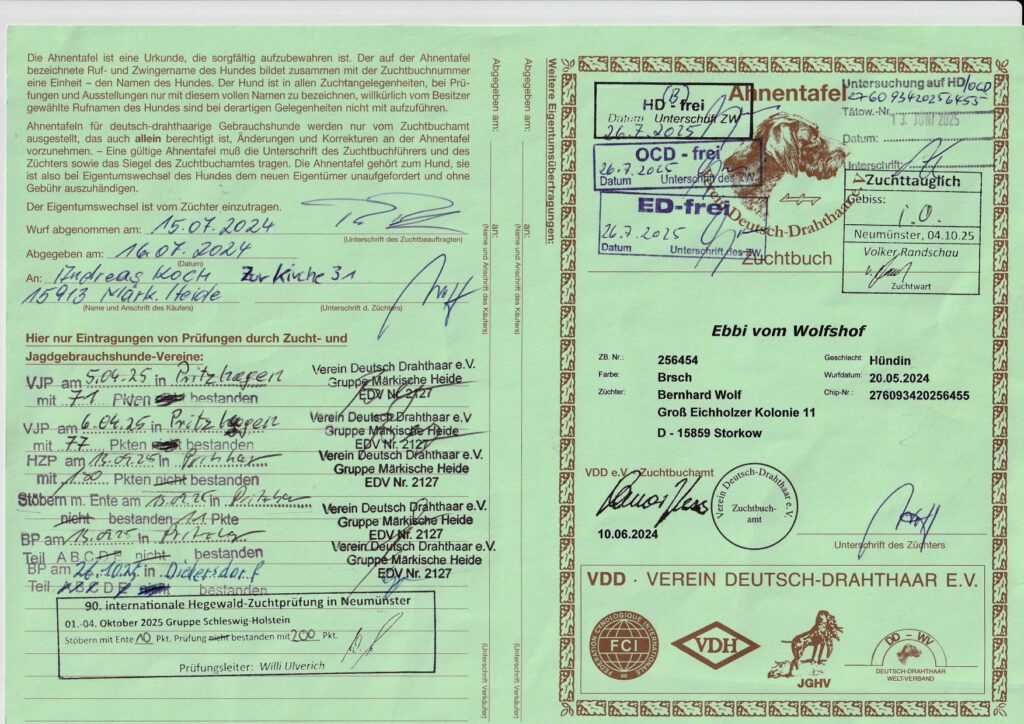 Die Ahnentafel ist eine Urkunde, die sorgfältig aufzubewahren ist. Der auf der Ahnentafel
bezeichnete Ruf- und Zwingername des Hundes bildet zusammen mit der Zuchtbuchnummer
eine Einheit – den Namen des Hundes. Der Hund ist in allen Zuchtangelegenheiten, bei Prü-
fungen und Ausstellungen nur mit diesem vollen Namen zu bezeichnen, willkürlich vom Besitzer
gewählte Rufnamen des Hundes sind bei derartigen Gelegenheiten nicht mit aufzuführen.
Ahnentafeln für deutsch-drahthaarige Gebrauchshunde werden nur vom Zuchtbuchamt
ausgestellt, das auch allein berechtigt ist, Änderungen und Korrekturen an der Ahnentafel
vorzunehmen. – Eine gültige Ahnentafel muß die Unterschrift des Zuchtbuchführers und des
Züchters sowie das Siegel des Zuchtbuchamtes tragen. Die Ahnentafel gehört zum Hund, sie
ist also bei Eigentumswechsel des Hundes dem neuen Eigentümer unaufgefordert und ohne
Gebühr auszuhändigen.
Der Eigentumswechsel ist vom Züchter einzutragen.
Wurf abgenommen am: 15.07.2024
(Unterschrift des Zuchtbeauftragten)
Abgegeben am: 16.07.2024
(Datum)
An: Andreas Koch Zur Kirche 31
15913 Märk. Heide
(Name und Anschrift des Käufers) (Unterschrift d. Züchters)
Hier nur Eintragungen von Prüfungen durch Zucht- und
Jagdgebrauchshunde-Vereine:
VJP am 5.04.25 in Pritzhagen
mit 71 Pkten bestanden
Verein Deutsch Drahthaar e.V.
Gruppe Märkische Heide
EDV Nr. 2127
VJP am 6.04.25 in Pritzhagen
mit 77 Pkten bestanden
Verein Deutsch Drahthaar e.V
Gruppe Märkische Heide
EDV Nr. 2127
HZP am in
mit Pkten nicht bestanden
Verein Deutsch Drahthaar e.V.
Gruppe Märkische Heide
EDV Nr. 2127
Stöbern m. Ente am in
nicht bestanden 11 Pkte
Verein Deutsch Drahthaar e.V.
Gruppe Märkische Heide
EDV Nr. 2127
BP am in
Teil A B C D E nicht bestanden
Verein Deutsch Drahthaar e.V.
Gruppe Märkische Heide
EDV Nr. 2127
BP am 26.10.25 in Diedersdorf
Teil A B C D E nicht bestanden
90. internationale Hegewald-Zuchtprüfung in Neumünster
01.-04. Oktober 2025 Gruppe Schleswig-Holstein
Stöbern mit Ente 10 Pkt. Prüfung nicht bestanden mit 200 Pkt.
Prüfungsleiter: Willi Ulverich
Abgegeben am:
an:
(Name und Anschrift des Käufers)
(Unterschrift Verkäufer)
Abgegeben am:
an:
(Name und Anschrift des Käufers)
(Unterschrift Verkäufers)
Weitere Eigentumsübertragungen:
Ahnentafel
HD - frei
(B)
Datum Unterschrift ZW
26.7.2025
OCD - frei
26.7.2025
Datum Unterschrift des ZW.
ED-frei
26.7.2025
Datum Unterschrift des ZW.
Untersuchung auf HD/OCD
276093420256455
Tätow.-Nr.
13. JUNI 2025
Datum:
Unterschrift:
Zuchttauglich
Gebiss:
i.O.
Neumünster, 04.10.25
Volker Randschau
Zuchtwart
Verein Deutsch-Drahthaar
Zuchtbuch
Ebbi vom Wolfshof
ZB. Nr.: 256454
Geschlecht: Hündin
Farbe: Brsch
Wurfdatum: 20.05.2024
Züchter: Bernhard Wolf
Chip-Nr.: 276093420256455
Groß Eichholzer Kolonie 11
D - 15859 Storkow
VDD e.V. Zuchtbuchamt
Verein Deutsch-Drahthaar e.V.
Zuchtbuch-
amt
10.06.2024
Unterschrift des Züchters
VDD · VEREIN DEUTSCH-DRAHTHAAR E.V.
FEDERATION CYNOLOGIQUE INTERNATIONALE
FCI
VDH
JGHV
DD - WV
DEUTSCH-DRAHTHAAR
WELT-VERBAND